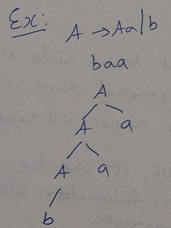 Ex: A → Aa|b
baa
A
A a
A a
b